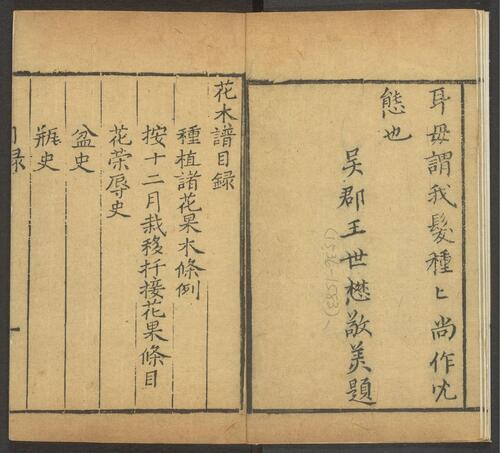 耳毋謂我髮種〻尚作兒
態也
吳郡王世懋敬美題
(1536-1583)
花木譜目錄
種植諸花果木條例
按十二月栽移扦接花果條目
花榮辱史
盆史
瓶史
目錄
一